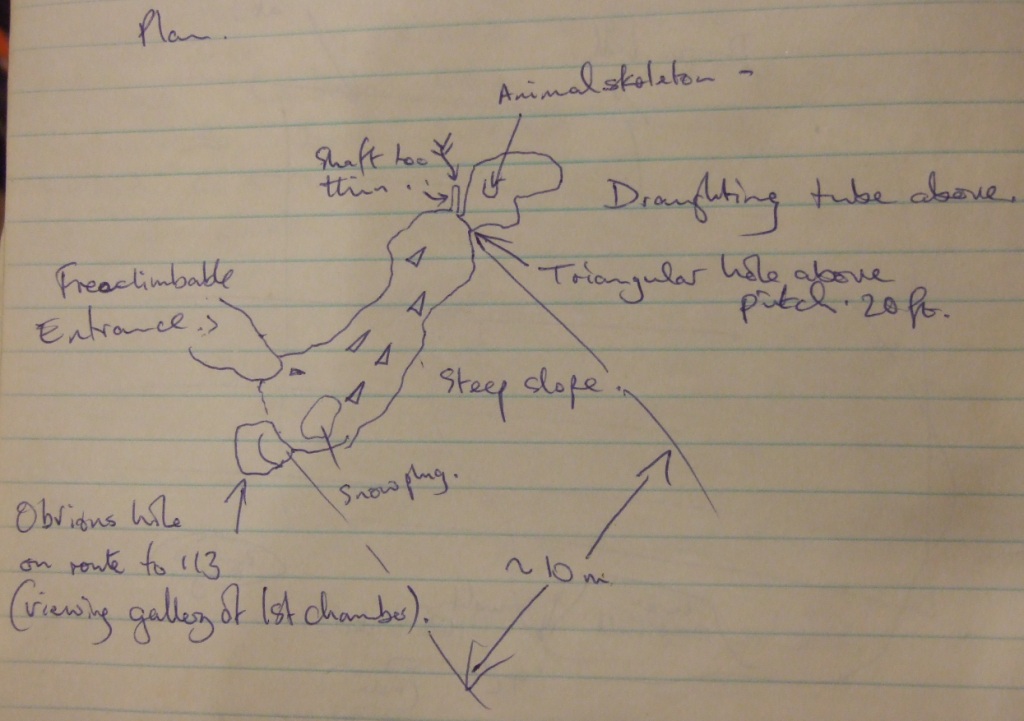 Plan.
Animal skeleton -
Shaft too
thin.
Draughting tube above.
Freeclimbable
Entrance.
Triangular hole above
pitch. 20ft.
Steep slope.
Snowplug.
Obvious hole
on route to 113
(viewing gallery of 1st chamber).
~10m